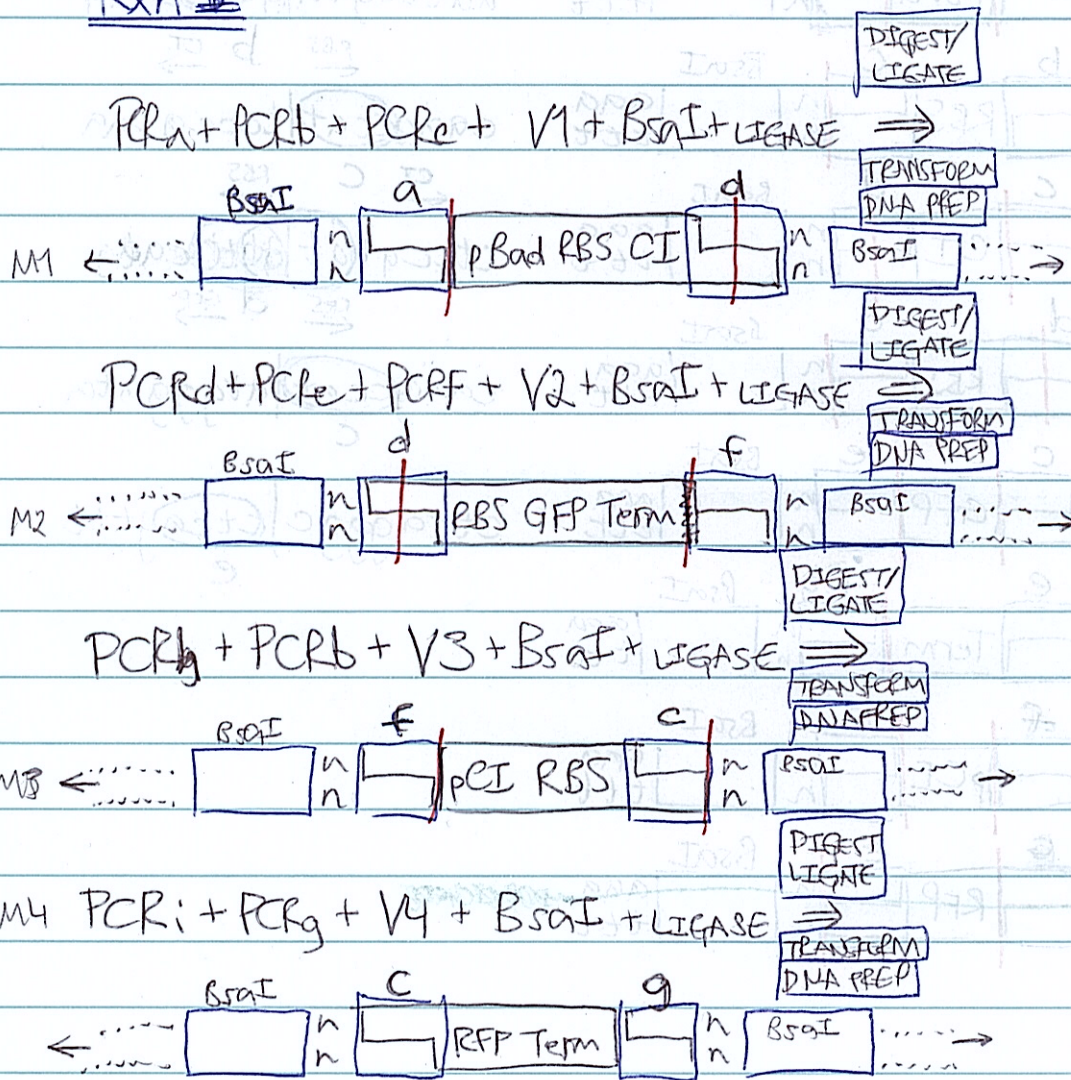 DIGEST/
LIGATE
PCRa + PCRb + PCRc + V1 + BsaI + LIGASE ⇒
TRANSFORM
DNA PREP
BsaI a d
M1 n n pBad RBS CI n n BsaI
DIGEST/
LIGATE
PCRd + PCRe + PCRF + V2 + BsaI + LIGASE ⇒
TRANSFORM
DNA PREP
BsaI d f
M2 n n RBS GFP Term n n BsaI
DIGEST/
LIGATE
PCRh + PCRb + V3 + BsaI + LIGASE ⇒
TRANSFORM
DNA PREP
BsaI f c
M3 n n pCI RBS n n BsaI
DIGEST
LIGATE
M4 PCRi + PCRg + V4 + BsaI + LIGASE ⇒
TRANSFORM
DNA PREP
BsaI C g
n n RFP Term n n BsaI